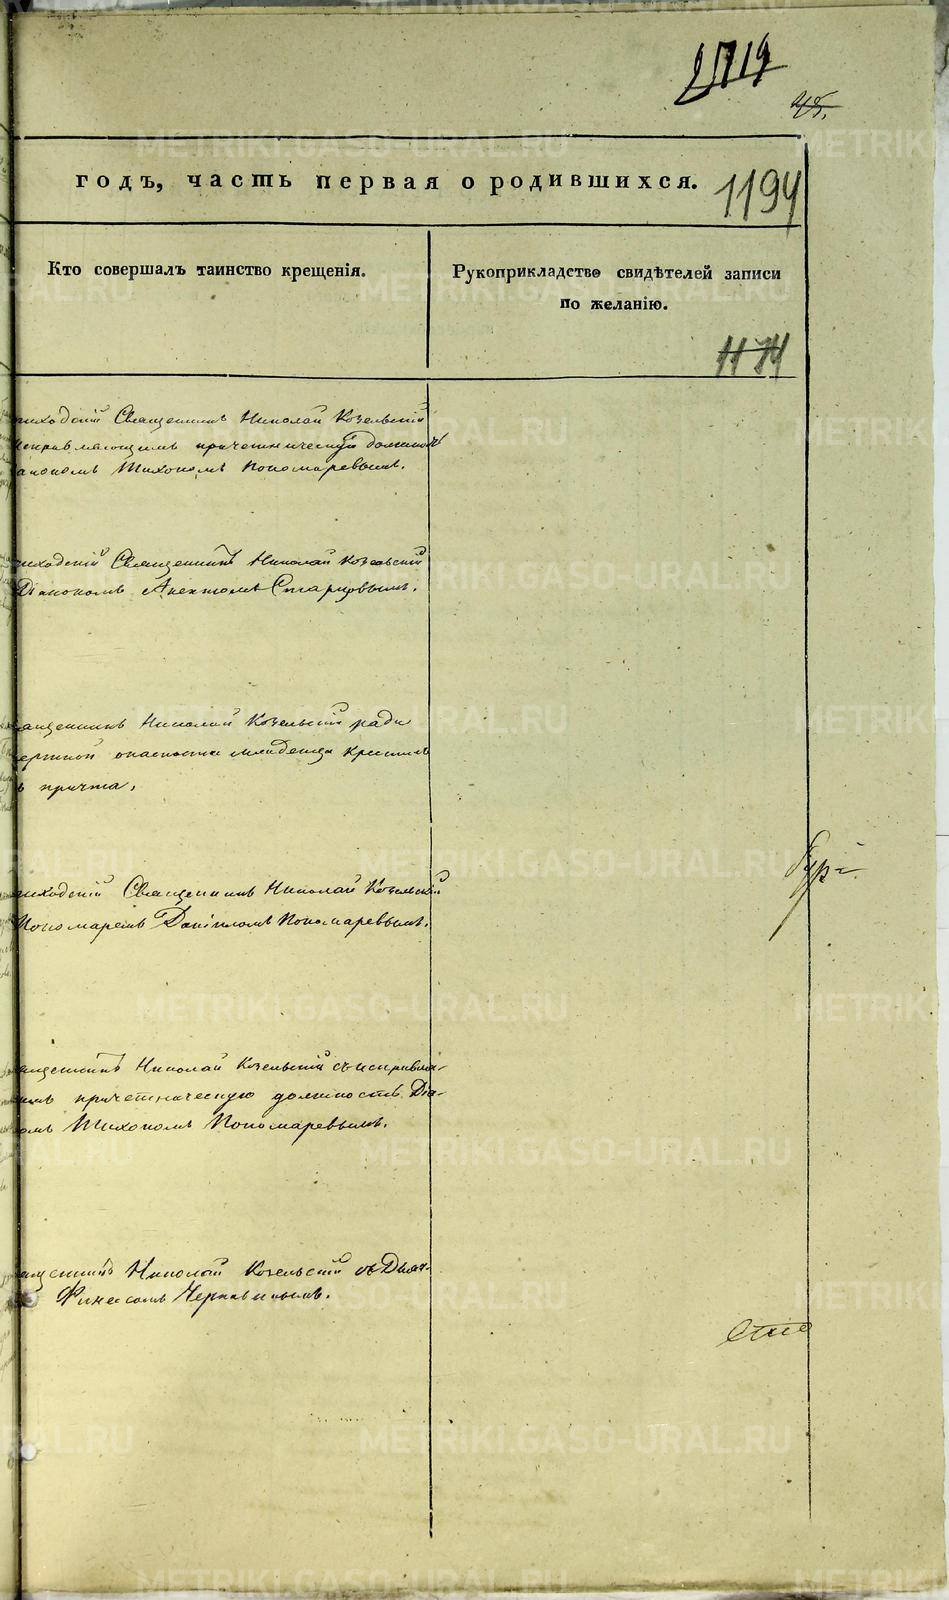 2719
45.
годъ, часть первая о родившихся. 1194
Кто совершалъ таинство крещенія.
Рукоприкладство свидѣтелей записи
по желанію.
1174
риходскій Священникъ Николай Козельскій
исправляющимъ причетническую должность
Діакономъ Тихономъ Пономаревымъ.
риходскій Священникъ Николай Козельскій
Діакономъ Старцовымъ.
ященникъ Николай Козельскій ради
смертной опасности младенца крестилъ
ъ причта.
риходскій Священникъ Николай Козельскій
Пономаремъ Даніиломъ Пономаревымъ.
ященникъ Николай Козельскій съ исправля-
имъ причетническую должность Діа-
омъ Тихономъ Пономаревымъ.
ященникъ Николай Козельскій съ Дьяч-
Финеесомъ Чернавинымъ.
METRIKI.GASO-URAL.RU